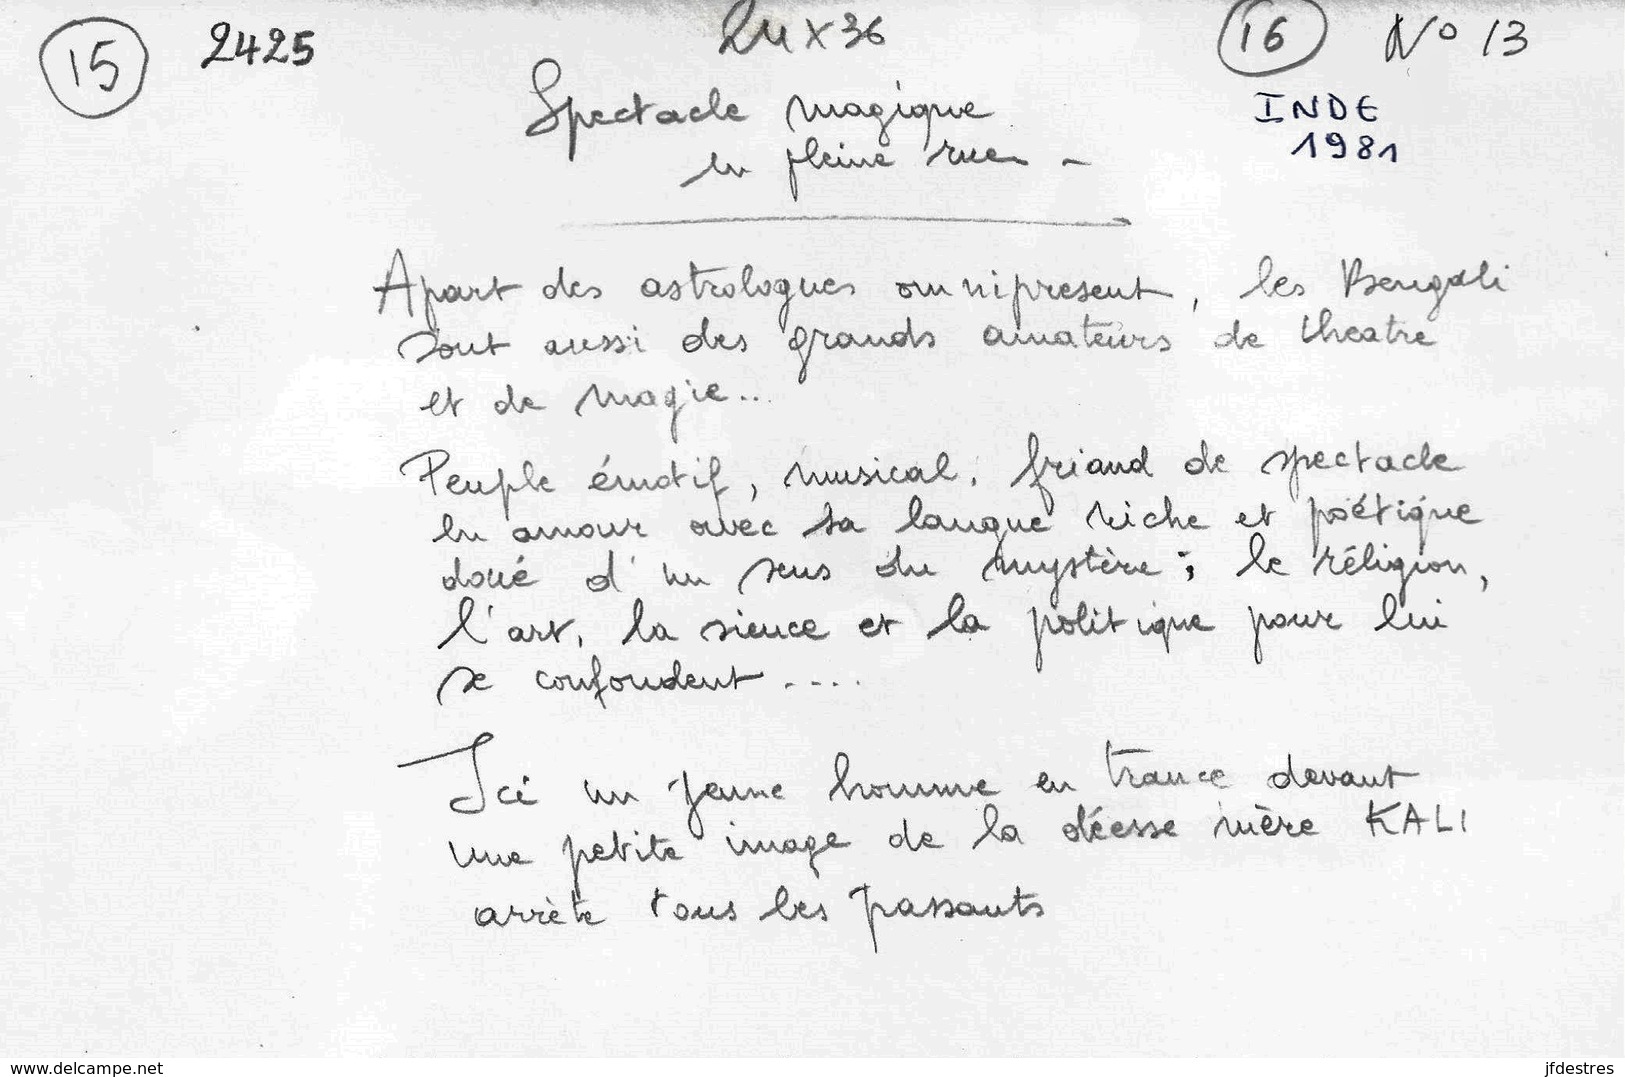 15 2425 24 x 36 16 N° 13
Spectacle magique INDE
en pleine rue - 1981
Apart des astrologues omnipresent, les Bengali
sont aussi des grands amateurs de theatre
et de magie...
Peuple émotif, musical, friand de spectacle
en amour avec sa langue riche et poétique
doué d'un sens du mystère; le réligion,
l'art, la sience et la politique pour lui
se confondent ....
Ici un jeune homme en trance devant
une petite image de la déesse mère KALI
arrète tous les passants
www.delcampe.net jfdestres